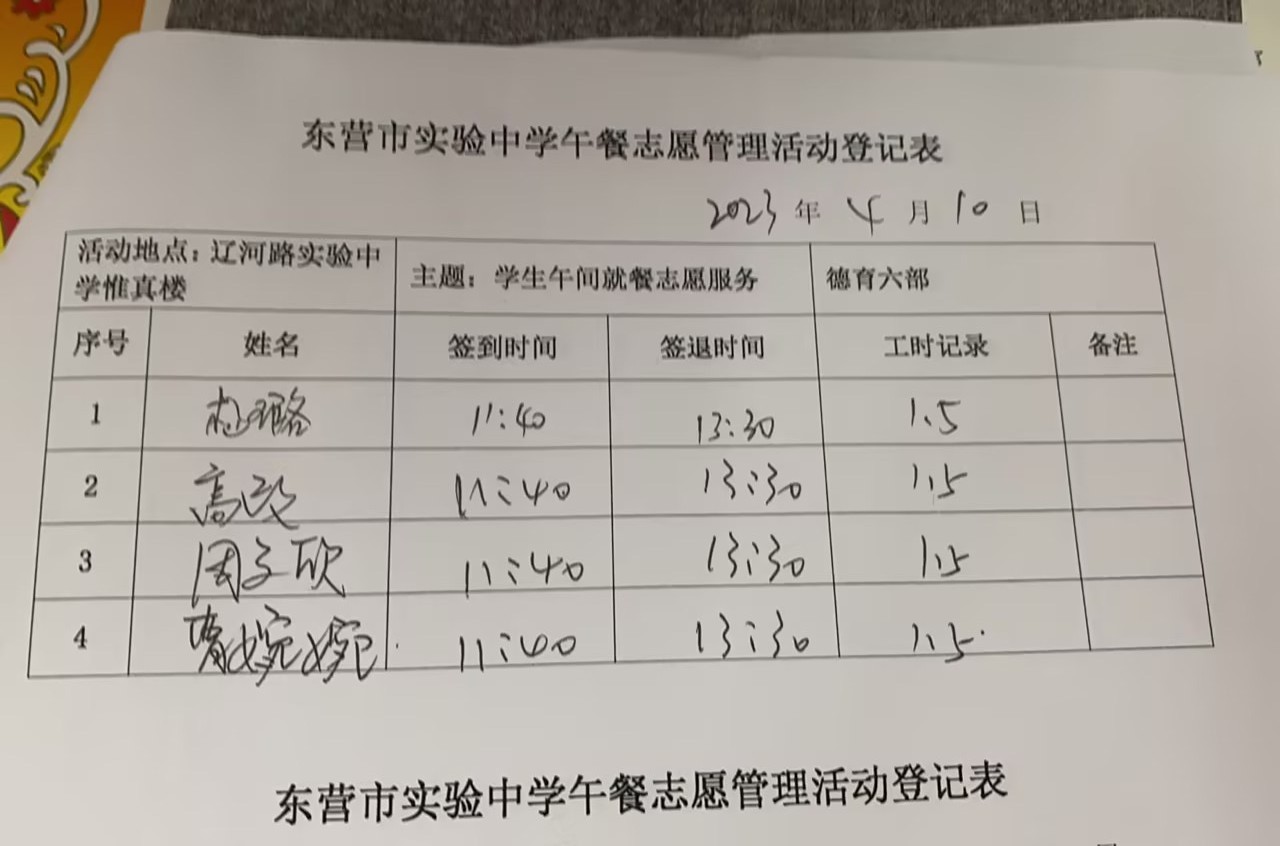 东营市实验中学午餐志愿管理活动登记表
2023 年 4 月 10 日
活动地点：辽河路实验中
学惟真楼
主题：学生午间就餐志愿服务
德育六部
序号 姓名 签到时间 签退时间 工时记录 备注
1 杜璐 11:40 13:30 1.5
2 高政 11:40 13:30 1.5
3 周子欣 11:40 13:30 1.5
4 婉婉 11:40 13:30 1.5
东营市实验中学午餐志愿管理活动登记表